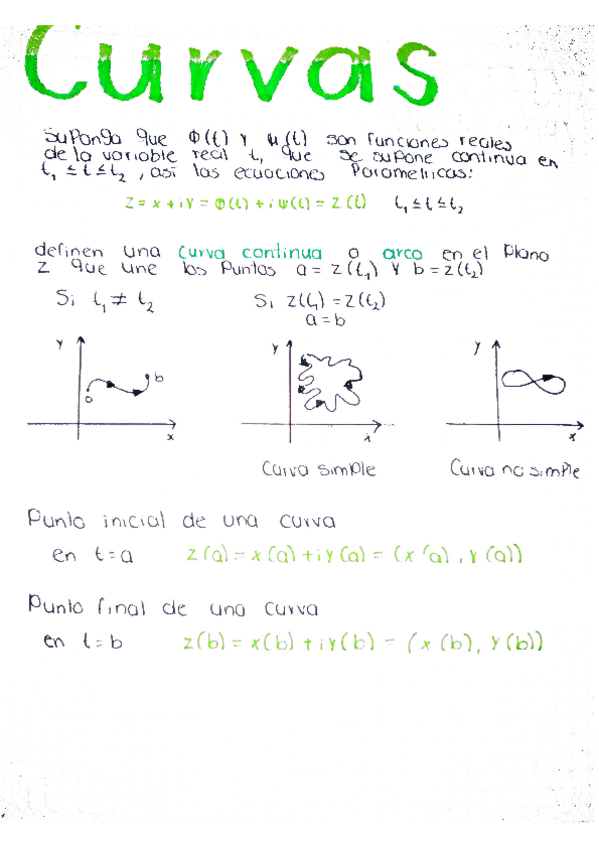 Curvas
Suponga que Φ(t) y ψ(t) son funciones reales
de la variable real t, que se supone continua en
t₁ ≤ t ≤ t₂, así las ecuaciones parametricas:
z = x + iy = Φ(t) + iψ(t) = z(t) t₁ ≤ t ≤ t₂
definen una curva continua o arco en el plano
z que une los puntos a = z(t₁) y b = z(t₂)
Si t₁ ≠ t₂ Si z(t₁) = z(t₂)
a = b
y a b x
y x
y x
Curva simple Curva no simple
Punto inicial de una curva
en t = a z(a) = x(a) + iy(a) = (x(a), y(a))
Punto final de una curva
en t = b z(b) = x(b) + iy(b) = (x(b), y(b))